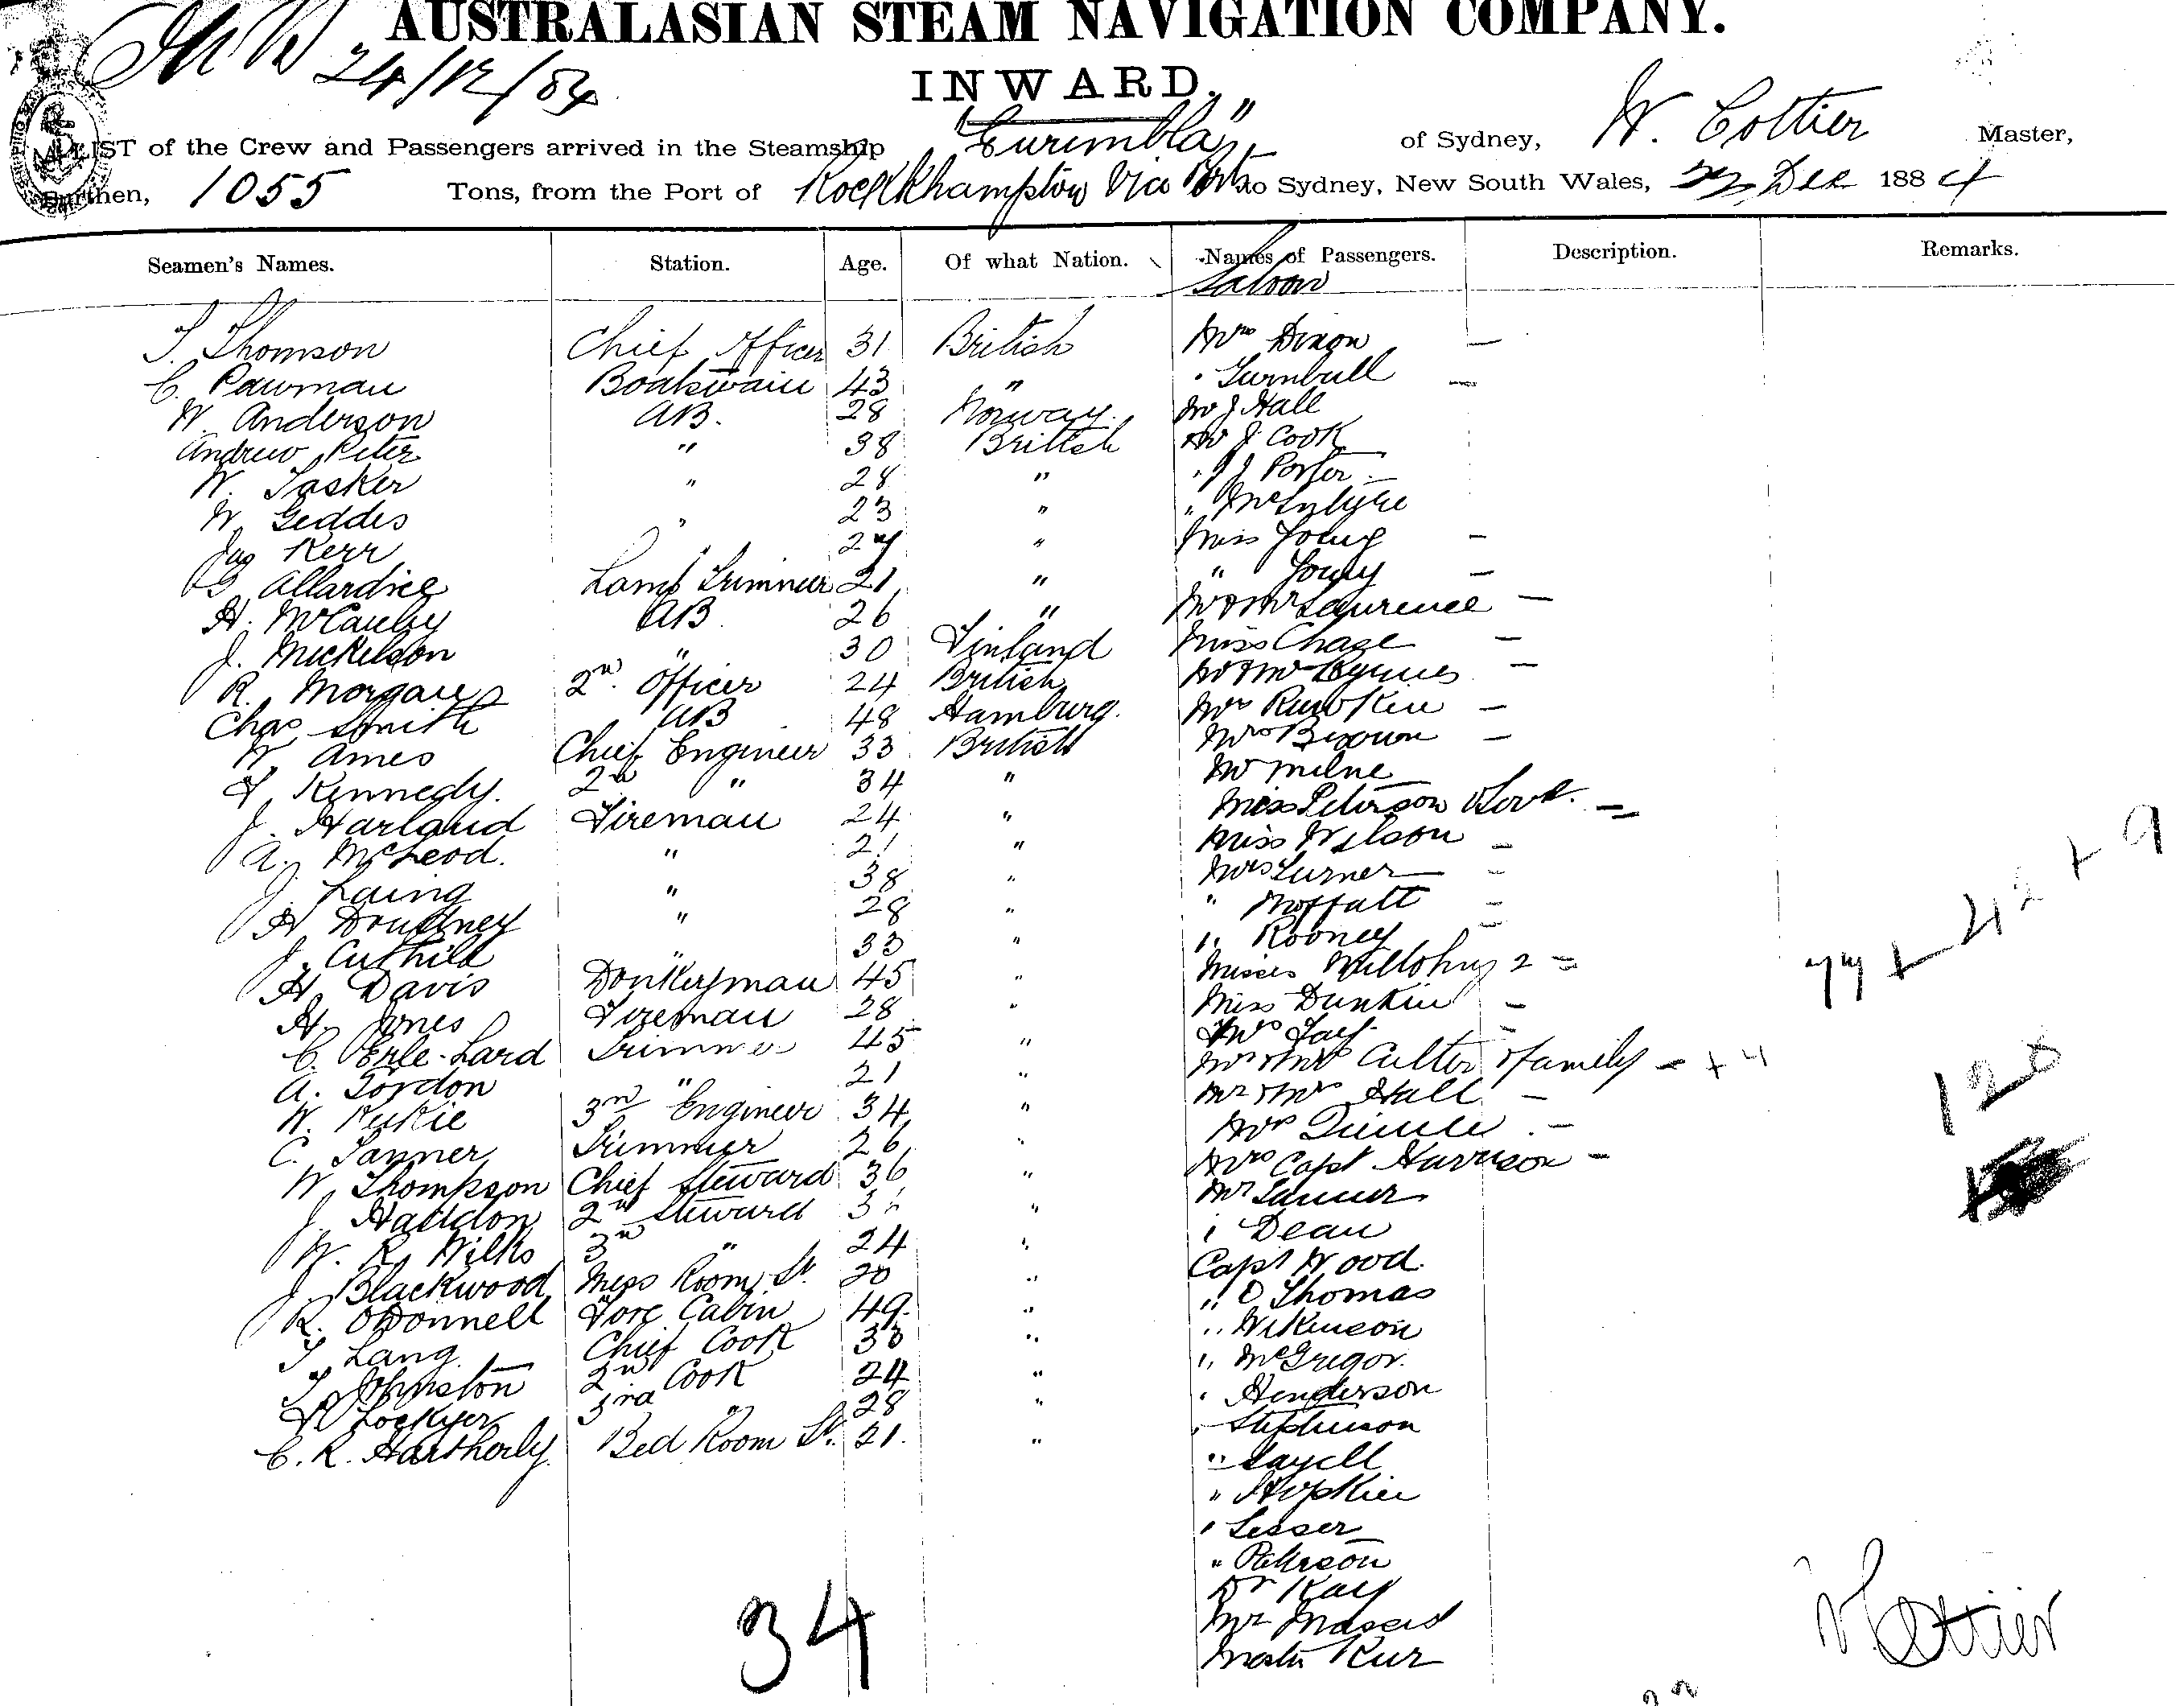 AUSTRALASIAN STEAM NAVIGATION COMPANY.
24/12/84
INWARD.
A LIST of the Crew and Passengers arrived in the Steamship "Gurimbla" of Sydney, W. Cottier Master,
Burthen, 1055 Tons, from the Port of Rockhampton Via Ports to Sydney, New South Wales, Dec 1884
Seamen's Names. Station. Age. Of what Nation. Names of Passengers. Description. Remarks.
Saloon
T. Thomson Chief Officer 31 British Mrs Dixon —
C. Pawman Boatswain 43 " " Turnbull —
W. Anderson AB. 28 Norway. Mr J Hall
Andrew Peter " 38 British Mr J Cook
W. Tasker " 28 " " J Porter —
W. Geddes " 23 " " McIntyre
Jas Kerr 24 " Miss Young —
G Allardice Lamp Trimmer 21 " " Young —
H. McCauley AB 26 " Mr & Mrs Laurence —
J. Mickelson " 30 Finland Miss Chase —
R. Morgan 2nd Officer 24 British Mr & Mrs —
Chas Smith AB 48 Hamburg. Mrs —
W. Ames Chief Engineer 33 British Mrs —
T. Kennedy. 2nd " 34 " Mr Milne
J. Harland Fireman 24 " Miss Peterson —
A. McLeod. " 21 " Miss Wilson —
J. Laing " 38 " Mrs Turner —
H Doudney " 28 " " Moffatt —
J. Cuthill " 33 " " Rooney —
H. Davis Donkeyman 45 " Misses 2 —
H. Jones Fireman 28 " Miss Dunkin —
C. Erle-Lard Trimmer 45 " Mrs —
A. Gordon " 21 " Mr & Mrs Culter & family — + 4
W. 3rd Engineer 34 " Mr & Mrs Hall —
C. Tanner Trimmer 26 " Mrs —
W. Thompson Chief Steward 36 " Mrs Capt Harrison —
J. Haddon 2nd Steward " Mr
W. R. Wilks 3rd " 24 " " Dean
J. Blackwood Mess Room St. 20 " Capt Wood.
R. O'Donnell Fore Cabin 49. " " O Thomas
T. Lang. Chief Cook 33 " " Wilkinson
T. Johnston 2nd Cook 24 " " McGregor.
Lockyer 3rd " 28 " " Henderson
C. R. Hartherly. Bed Room St. 21. " " Stephenson
" Sayell
" Hopkin
" Lesser
" Paterson
Dr Kay
Mr
Master
34
W Cottier